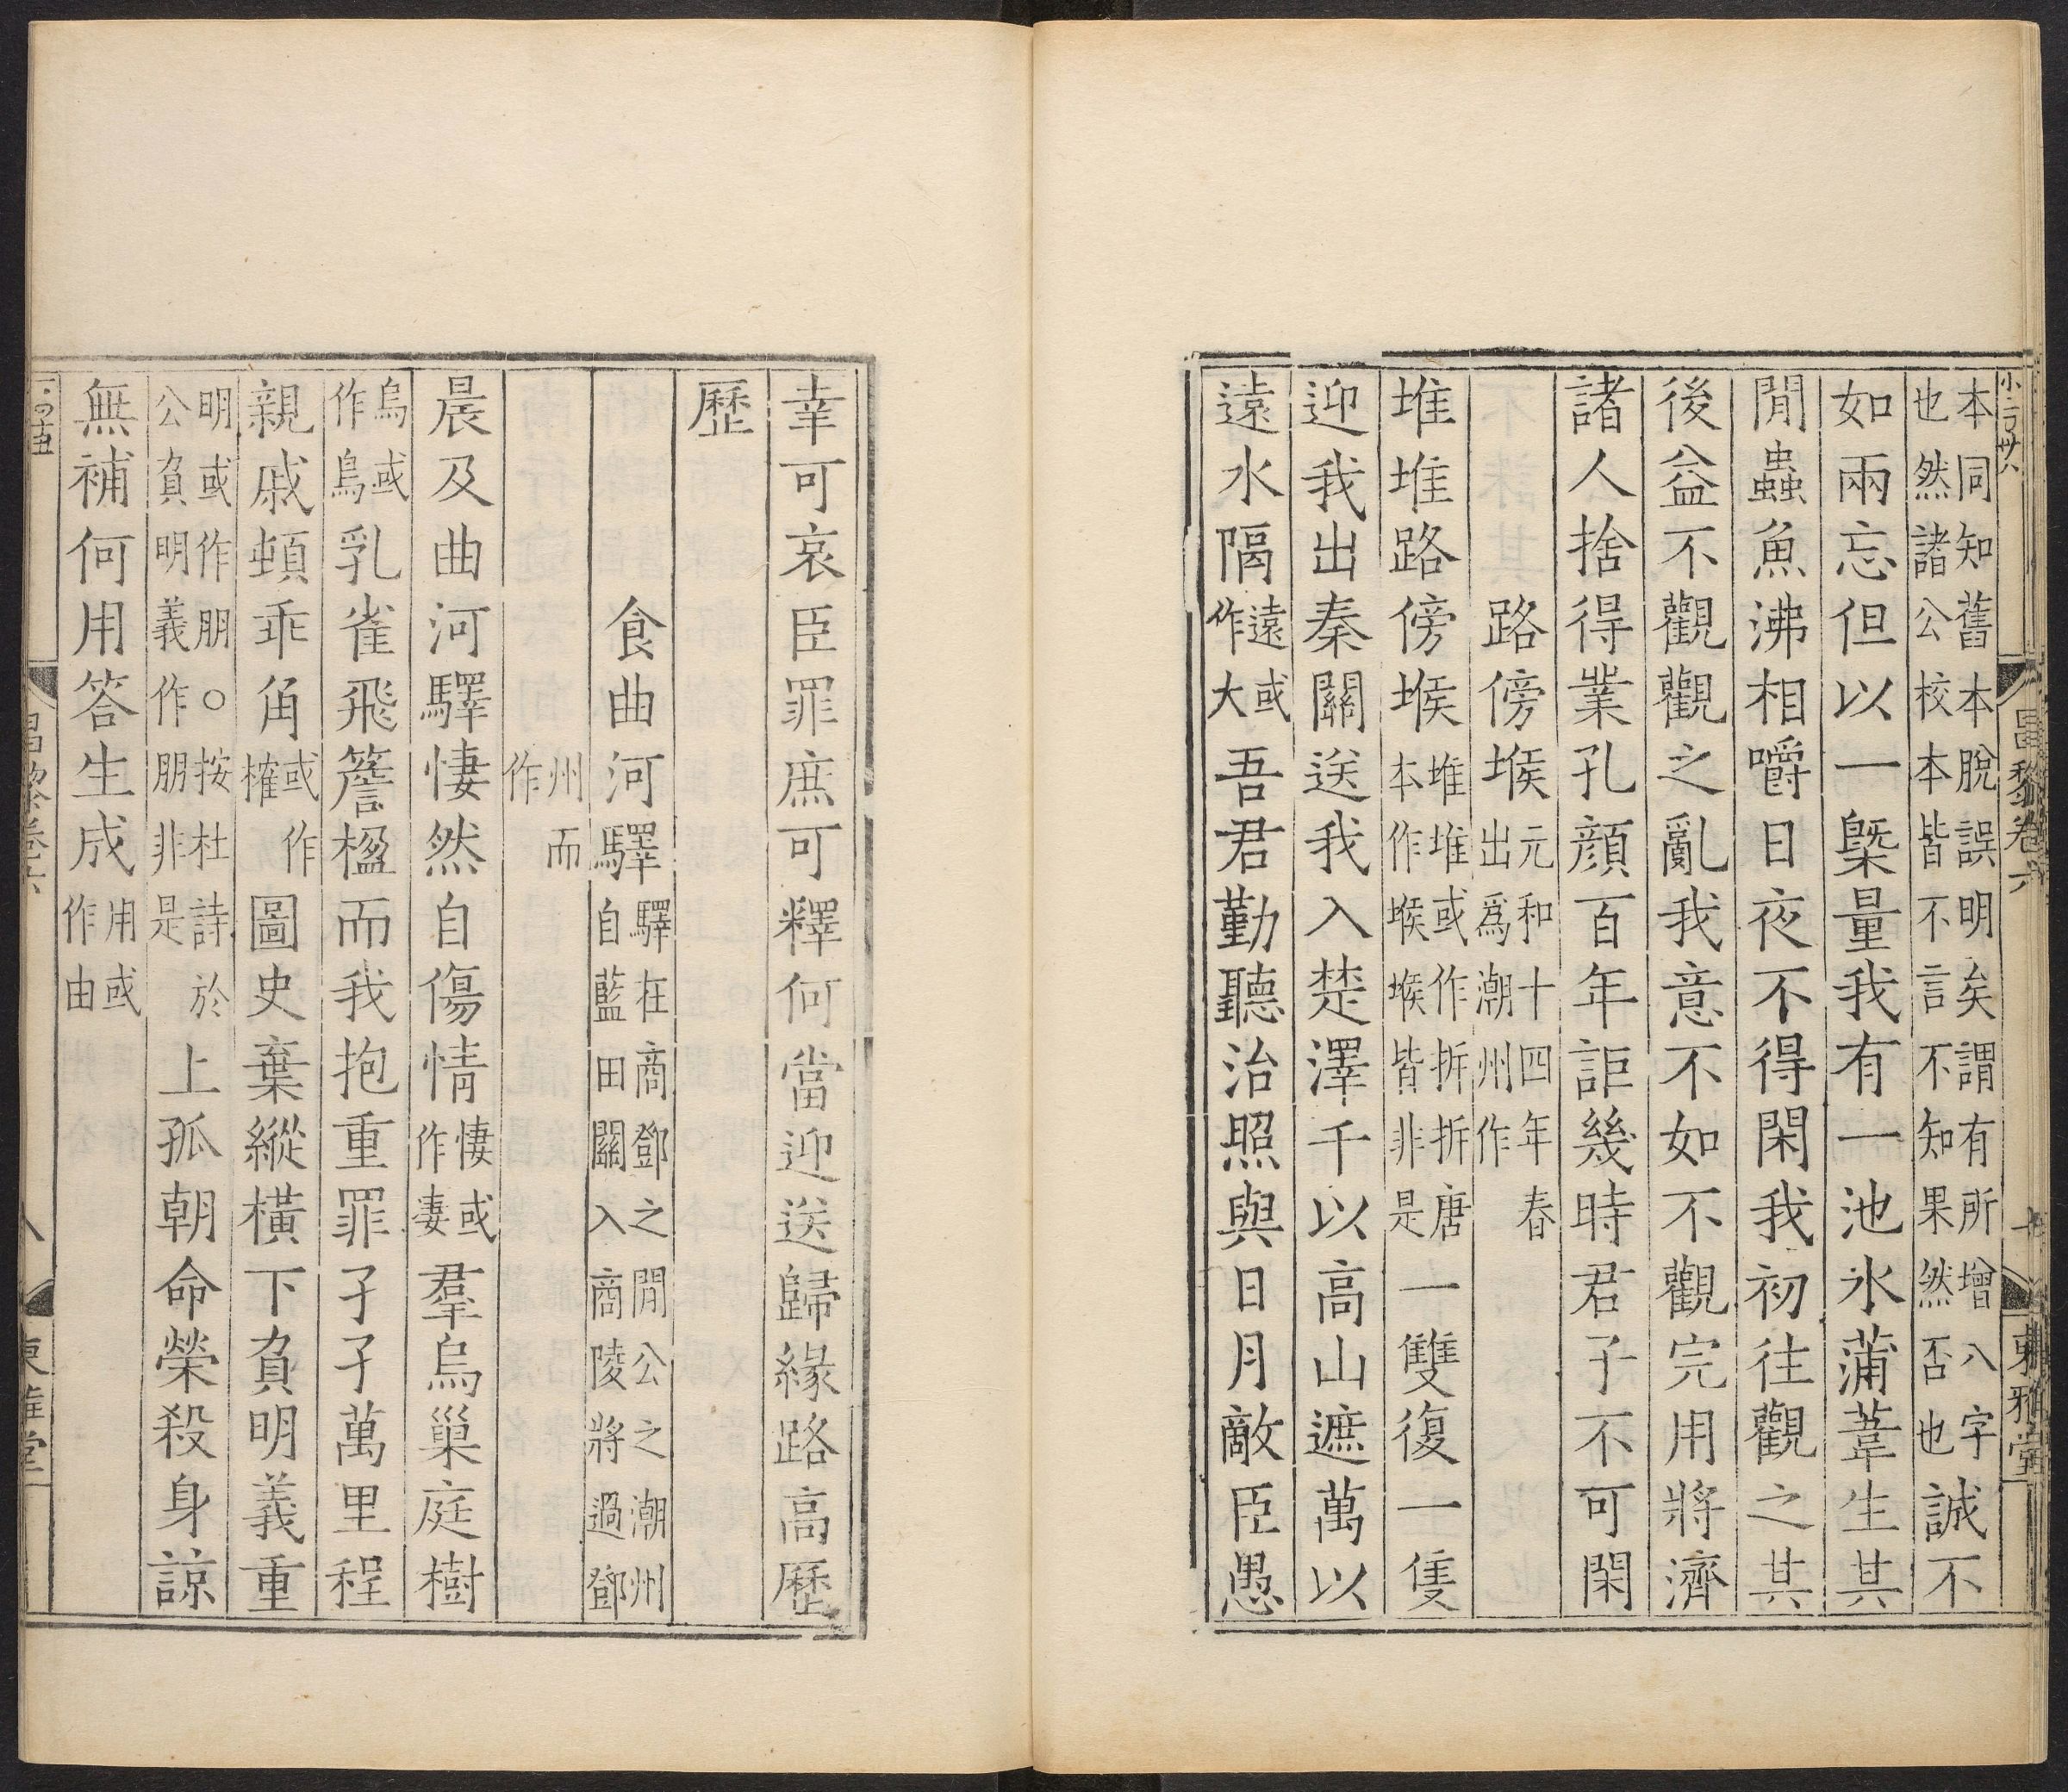 小二百廿八 昌黎卷六 七 東雅堂
本同知舊本脫誤明矣謂有所增八字也然諸公校本皆不言不知果然否也誠不
如兩忘但以一槩量我有一池水蒲葦生其
閒蟲魚沸相嚼日夜不得閑我初往觀之其
後益不觀觀之亂我意不如不觀完用將濟
諸人捨得業孔顔百年詎幾時君子不可閑
路傍堠元和十四年春出爲潮州作
堆堆路傍堠堆堆或作拆拆唐本作堠堠皆非是一雙復一隻
迎我出秦關送我入楚澤千以高山遮萬以
遠水隔遠或作大吾君勤聽治照與日月敵臣愚
幸可哀臣罪庶可釋何當迎送歸緣路高歷
歷
食曲河驛驛在商鄧之閒公之潮州自藍田關入商陵將過鄧
州而作
晨及曲河驛悽然自傷情悽或作淒羣烏巢庭樹
烏或作鳥乳雀飛簷楹而我抱重罪孑孑萬里程
親戚頓乖角或作搉圖史棄縱橫下負明義重
明或作朋○按杜詩於公負明義作朋非是上孤朝命榮殺身諒
無補何用答生成用或作由
昌黎卷六 八 東雅堂